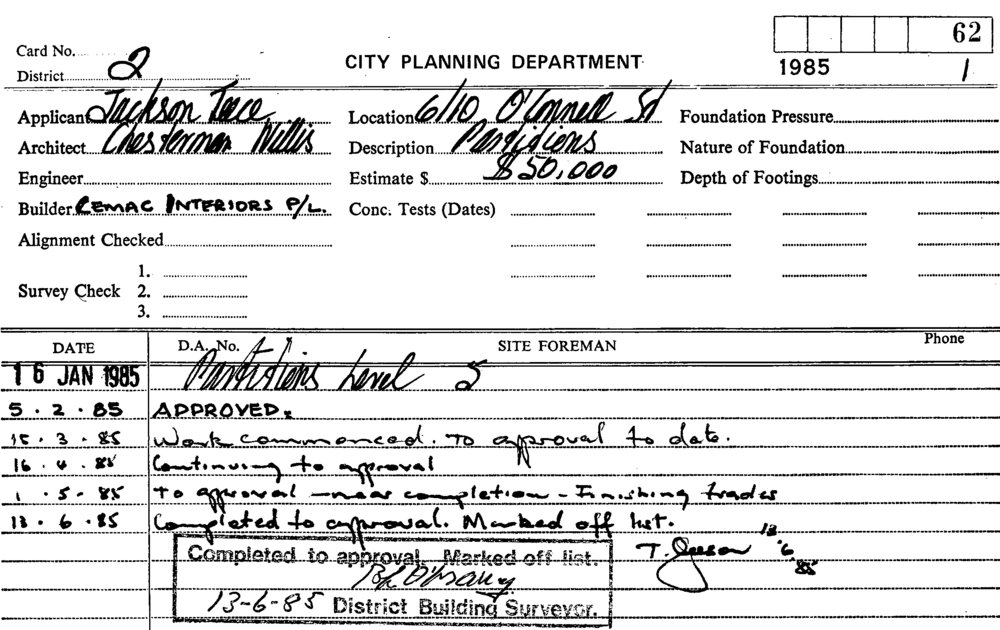 62
Card No.
District 2
CITY PLANNING DEPARTMENT
1985 1
Applicant Jackson Teece
Location 6/10 O'Connell St
Foundation Pressure
Architect Chesterman Willis
Description Partitions
Nature of Foundation
Engineer
Estimate $ $50,000
Depth of Footings
Builder REMAC INTERIORS P/L.
Conc. Tests (Dates)
Alignment Checked
Survey Check
1.
2.
3.
DATE D.A. No. SITE FOREMAN Phone
16 JAN 1985 Partitions Level 5
5.2.85 APPROVED.
15.3.85 Work commenced. To approval to date.
16.4.85 Continuing to approval
1.5.85 To approval - near completion - Finishing trades
13.6.85 Completed to approval. Marked off list.
T. 13.6.85
Completed to approval. Marked off list.
13-6-85 District Building Surveyor.